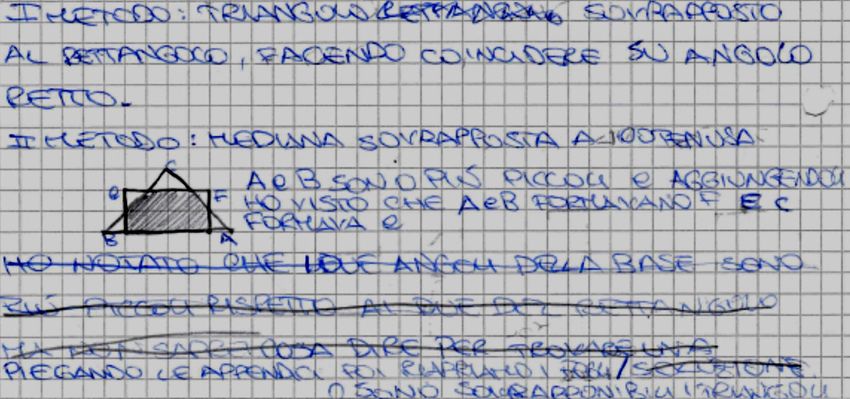 I METODO: TRIANGOLO RETTANGOLO SOVRAPPOSTO
AL RETTANGOLO, FACENDO COINCIDERE SU ANGOLO
RETTO.
II METODO: MEDIANA SOVRAPPOSTA A IPOTENUSA.
C
A e B SONO PIÙ PICCOLI e AGGIUNGENDOLI
e F
HO VISTO CHE A e B FORMAVANO F E C
FORMAVA e
B A
HO NOTATO CHE I DUE ANGOLI DELLA BASE SONO
PIÙ PICCOLI RISPETTO AI DUE DEL RETTANGOLO
MA NON SAPREI COSA DIRE PER TROVARE UNA
PIEGANDO LE APPENDICI POI RIAPRIAMO I / SOLUZIONE.
SONO SOVRAPPONIBILI I TRIANGOLI